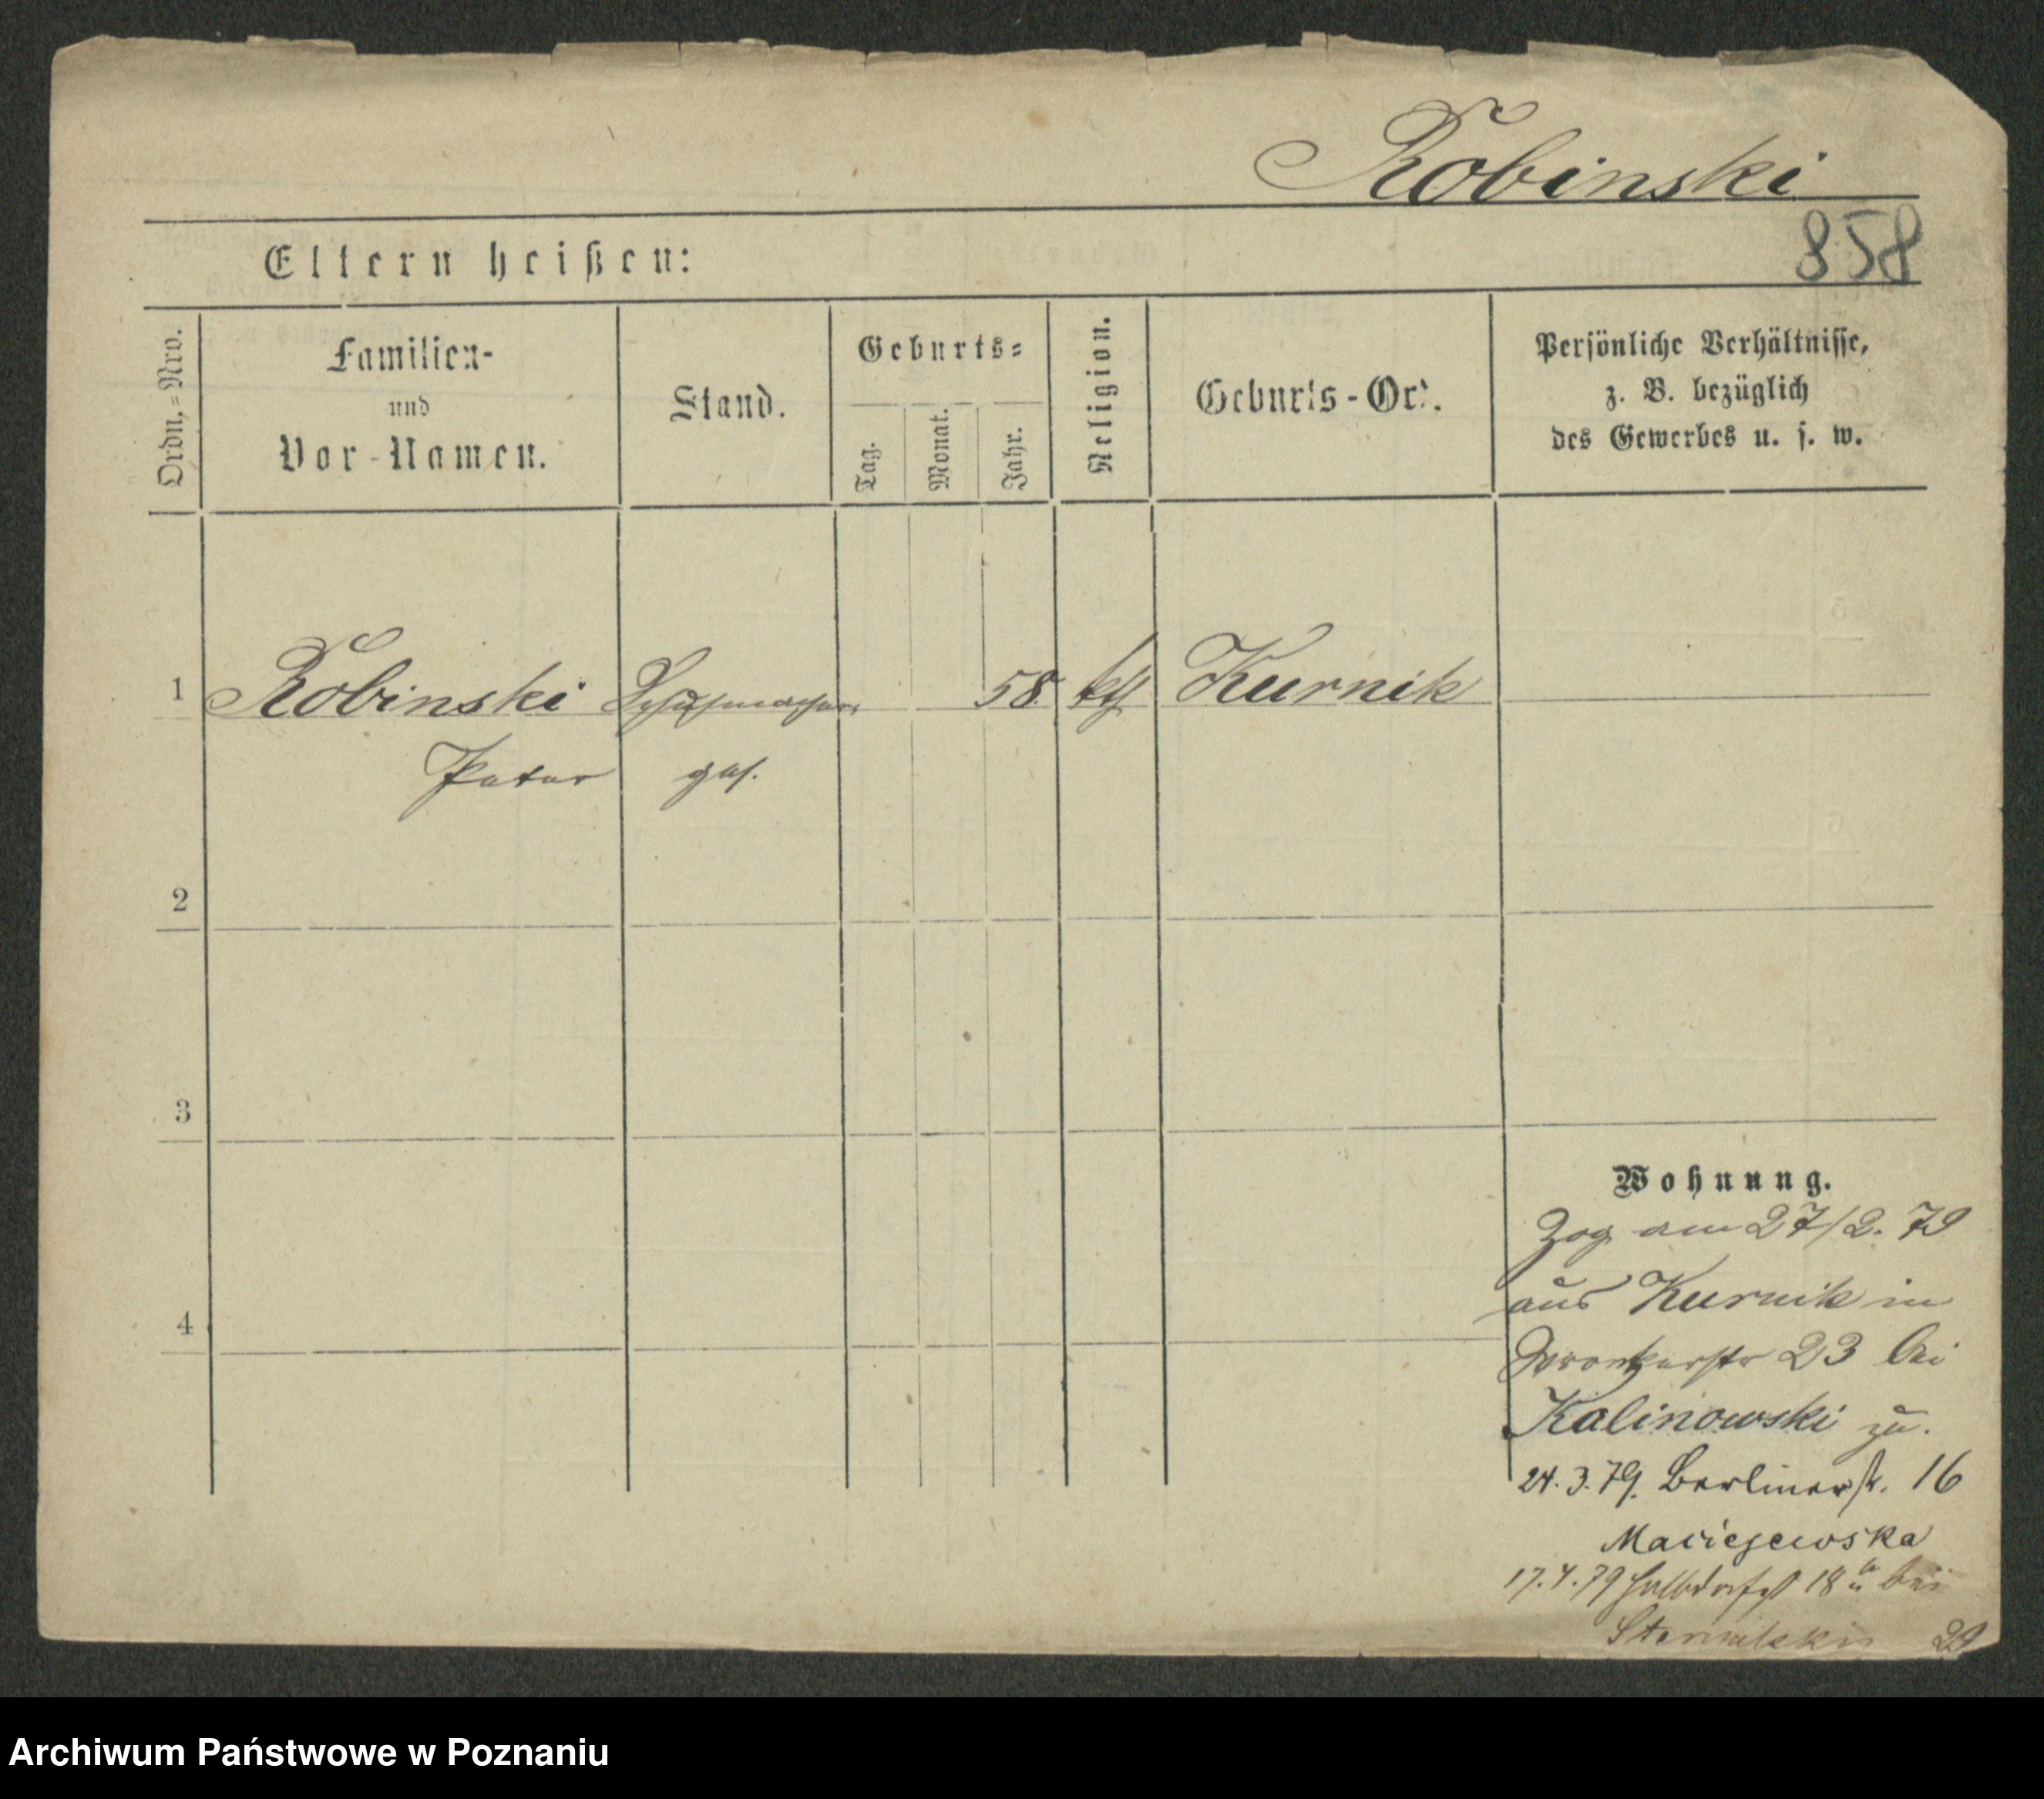 Robinski
858
Eltern heißen:
Ordn.-Nro.
Familien-
und
Vor-Namen.
Stand.
Geburts-
Tag.
Monat.
Jahr.
Religion.
Geburts-Ort.
Persönliche Verhältnisse,
z. B. bezüglich
des Gewerbes u. s. w.
1 Robinski Schuhmacher 58. kth Kurnik
Peter ges.
2
3
4
Wohnung.
Zog am 27/2. 79
aus Kurnik in
Wronkerstr 23 bei
Kalinowski zu.
24. 3. 79. Berlinerstr. 16
Maciejewska
17. 4. 79 Halbdorfst 18 bei
29
Archiwum Państwowe w Poznaniu